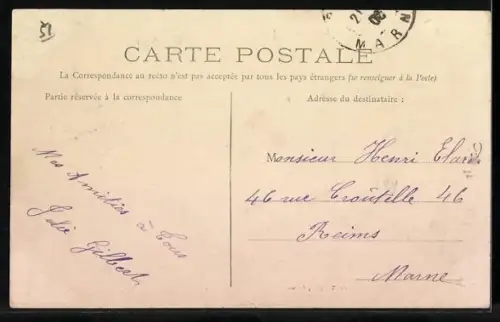 51
MARN
CARTE POSTALE
La Correspondance au recto n'est pas acceptée par tous les pays étrangers (se renseigner à la Poste)
Partie réservée à la correspondance
Adresse du destinataire :
Mes Amitiés à tous
Gilbert
Monsieur Henri
46 rue Croûtelle 46
Reims
Marne